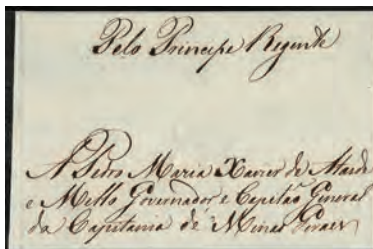 Pelo Principe Regente
A Pedro Maria Xavier de Ataide
e Mello Governador e Capitaõ General
da Capitania de Minas Geraes